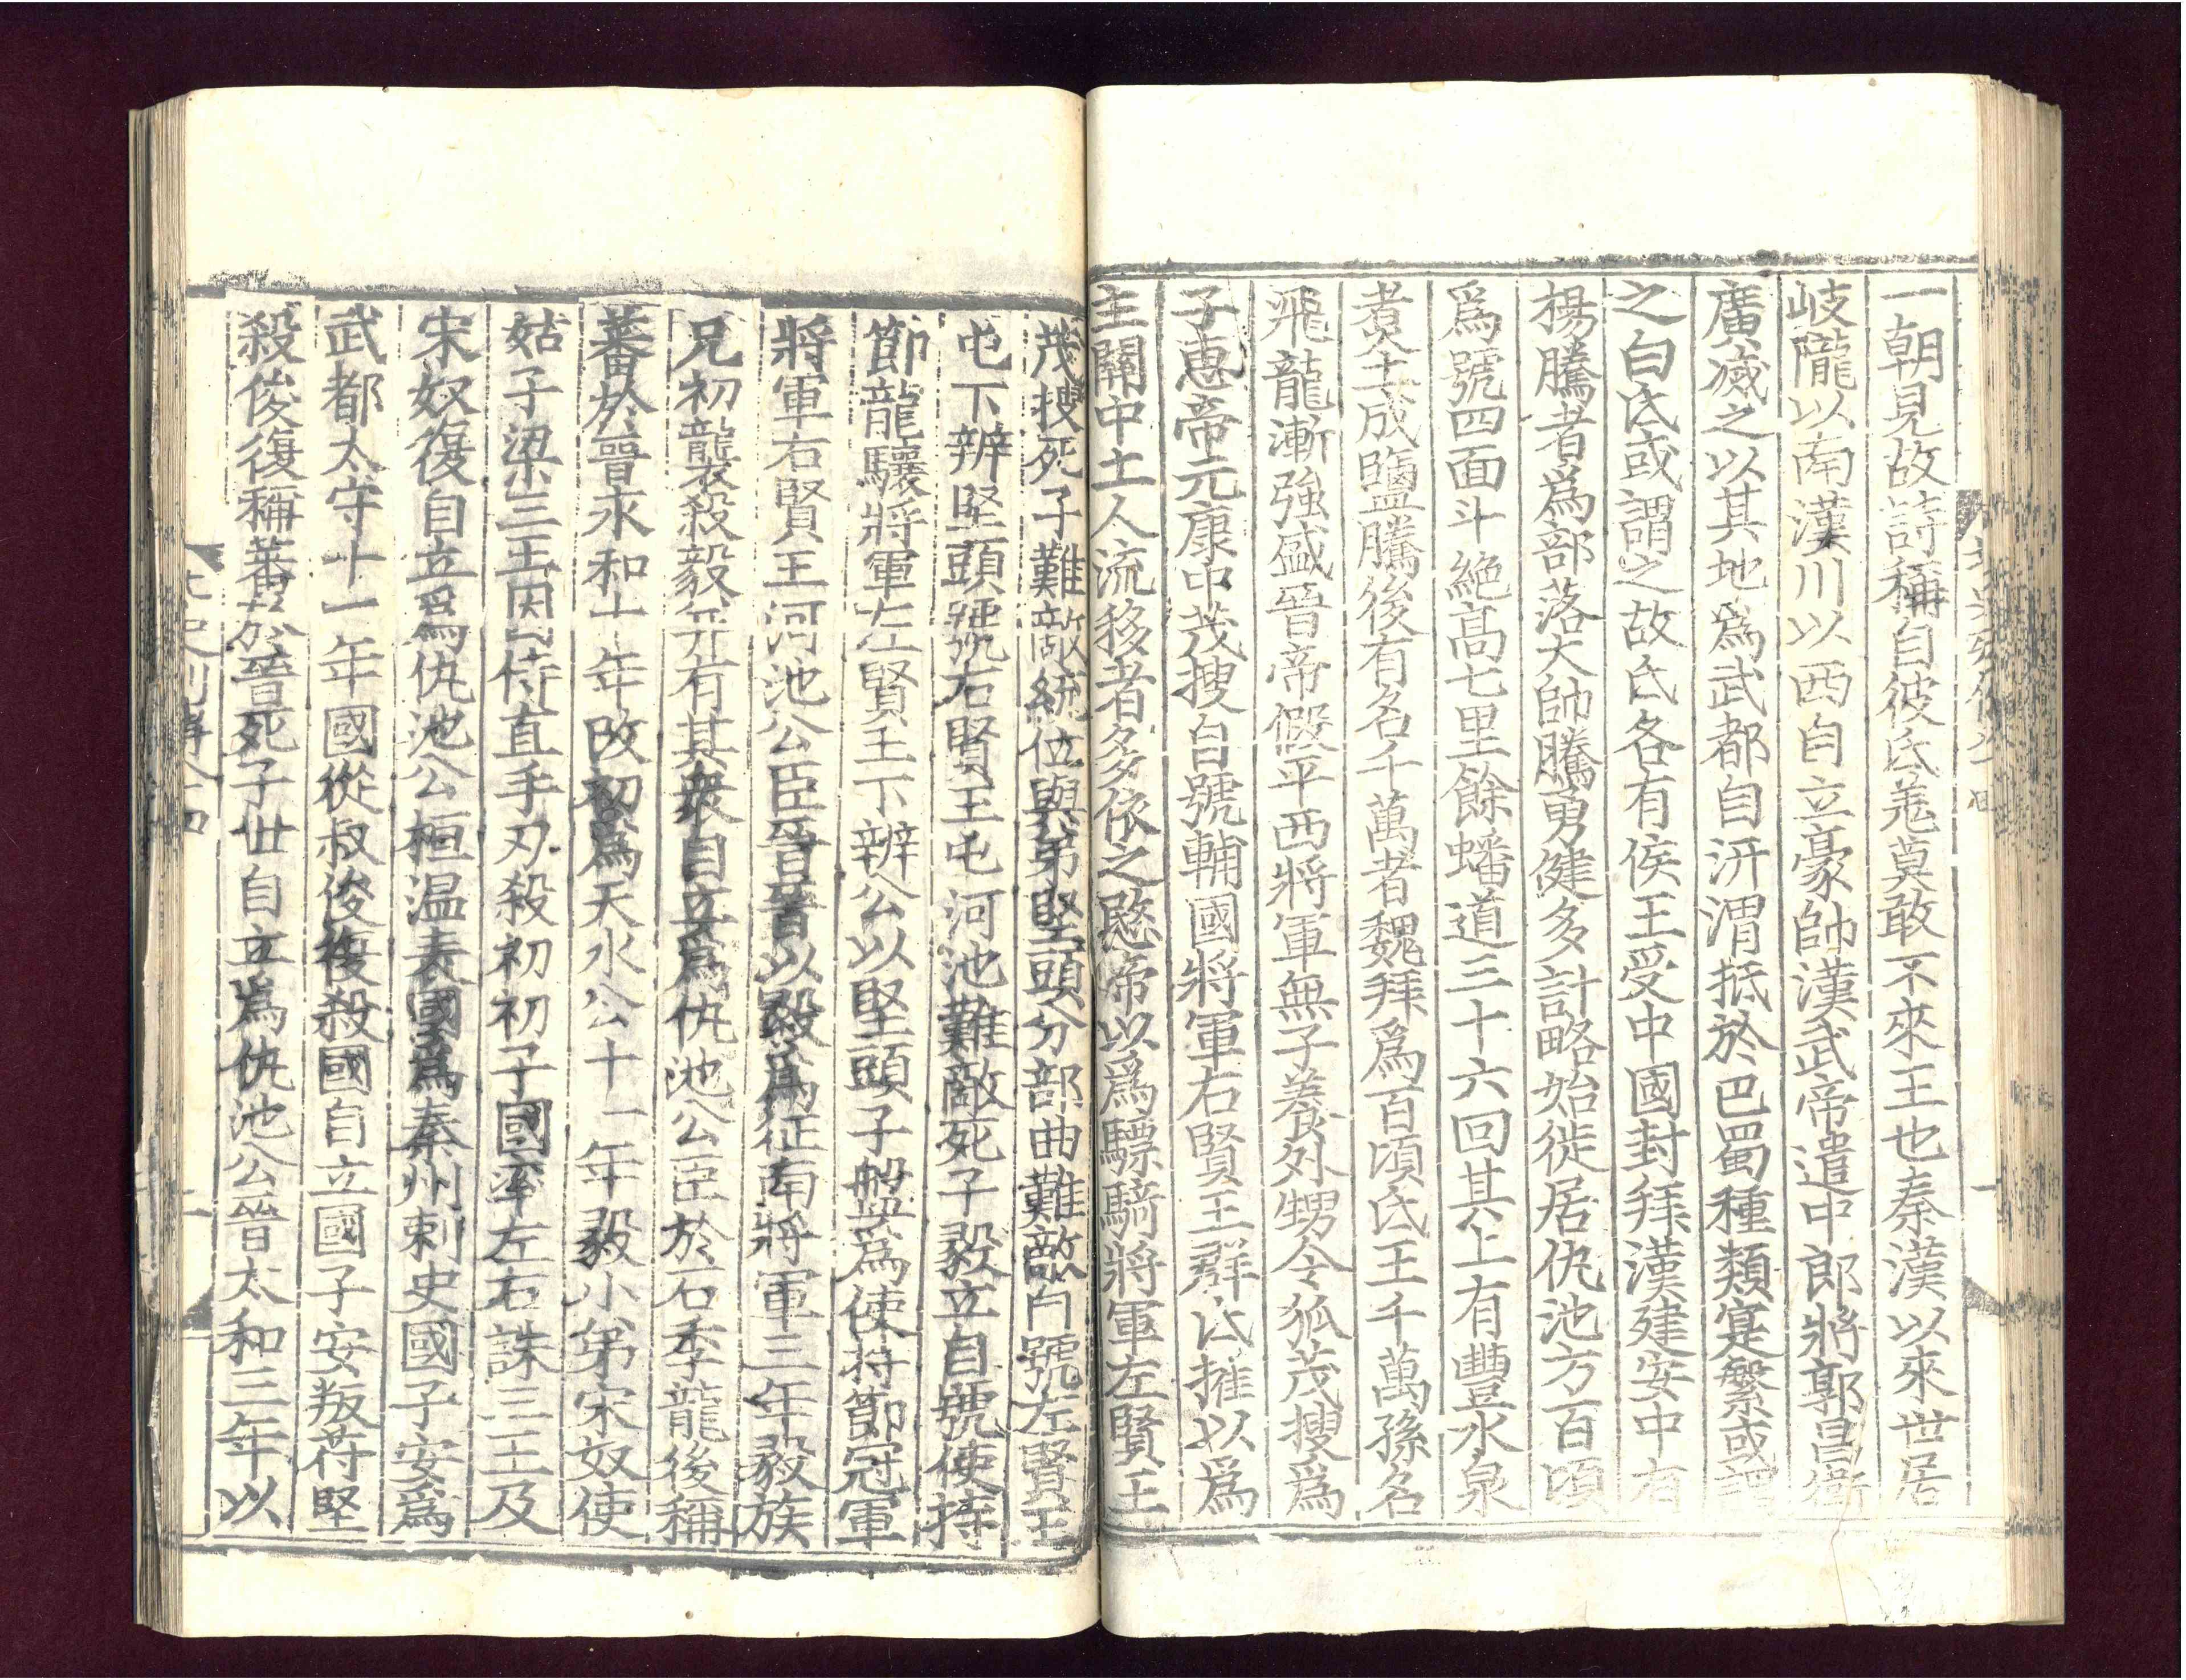 一朝見故詩稱自彼氐羗莫敢不來王也秦漢以來世居
岐隴以南漢川以西自立豪帥漢武帝遣中郎將郭昌衛
廣滅之以其地為武都自汧渭抵於巴蜀種類寔繁或謂
之白氐或謂之故氐各有侯王受中國封拜漢建安中有
楊騰者為部落大帥騰勇健多計略始徙居仇池方百頃
為號四面斗絶高七里餘蟠道三十六回其上有豐水泉
煑土成鹽騰後有名千萬者魏拜爲百頃氐王千萬孫名
飛龍漸強盛晉帝假平西將軍無子養外甥令狐茂搜為
子惠帝元康中茂搜自號輔國將軍右賢王群氐推以爲
主關中土人流移者多依之愍帝以爲驃騎將軍左賢王
茂搜死子難敵統位與弟堅頭分部曲難敵自號左賢王
屯下辨堅頭號右賢王屯河池難敵死子毅立自號使持
節龍驤將軍左賢王下辨公以堅頭子盤為使持節冠軍
將軍右賢王河池公臣晉晉以毅爲征南將軍三年毅族
兄初襲殺毅并有其衆自立爲仇池公臣於石季龍後稱
蕃於晉永和十年改初爲天水公十一年毅小弟宋奴使
姑子梁三王因侍直手刃殺初初子國率左右誅三王及
宋奴復自立爲仇池公桓温表國爲秦州刺史國子安爲
武都太守十一年國從叔俊復殺國自立國子安叛苻堅
殺俊復稱蕃於晉死子世自立爲仇池公晉太和三年以